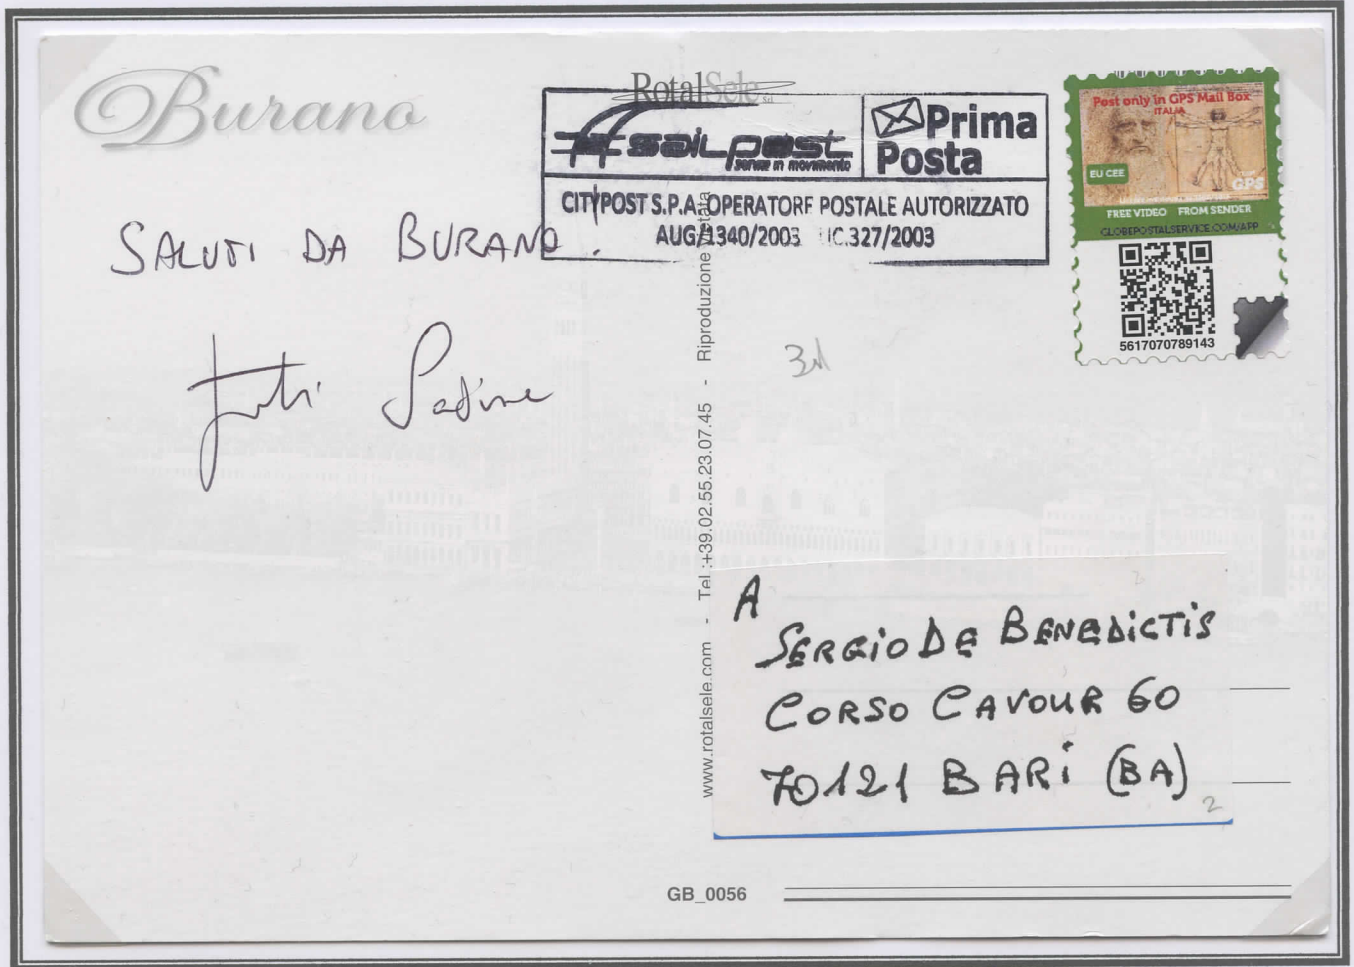 Burano
RotalSele
S.r.l.
sailpost
servizi in movimento
Prima
Posta
CITYPOST S.P.A. OPERATORE POSTALE AUTORIZZATO
AUG/1340/2003 LIC.327/2003
Post only in GPS Mail Box
ITALIA
EU CEE
GPS
FREE VIDEO FROM SENDER
GLOBEPOSTALSERVICE.COM/APP
5617070789143
SALUTI DA BURANO.
www.rotalsele.com - Tel.:+39.02.55.23.07.45 - Riproduzione vietata
A
SERGIO DE BENEDICTIS
CORSO CAVOUR 60
70121 BARI (BA)
2
GB_0056